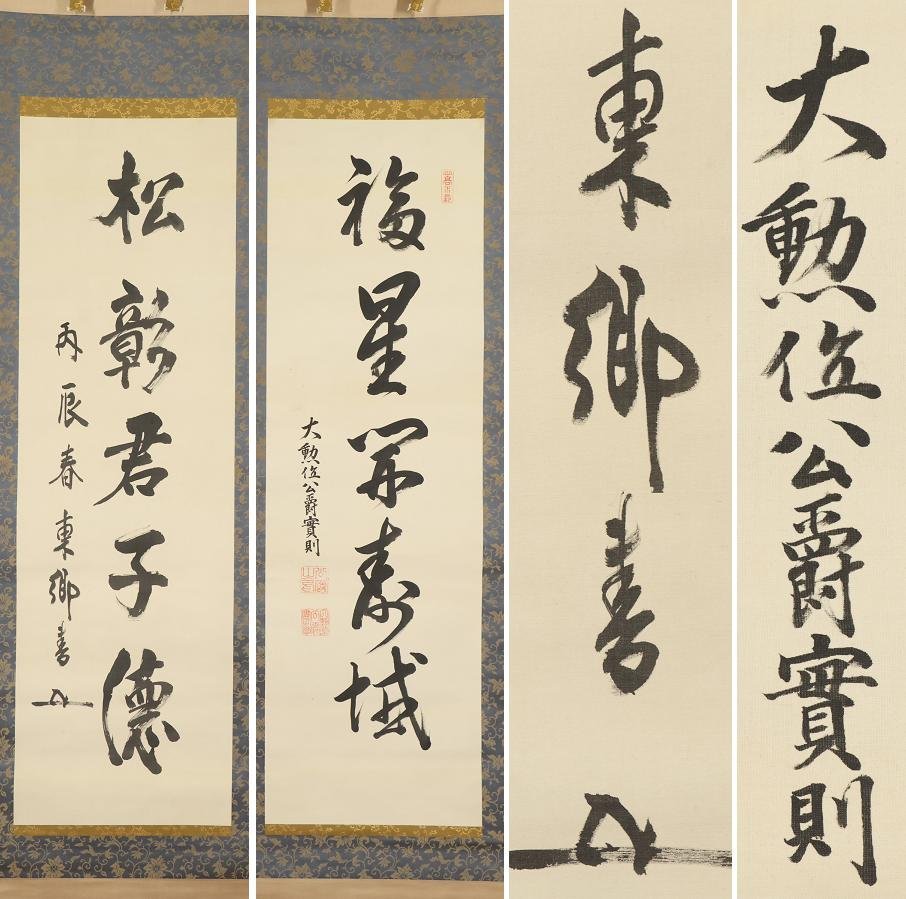 福星開壽域
大勲位公爵實則
松彰君子德
丙辰春東郷書
東郷書
大勲位公爵實則